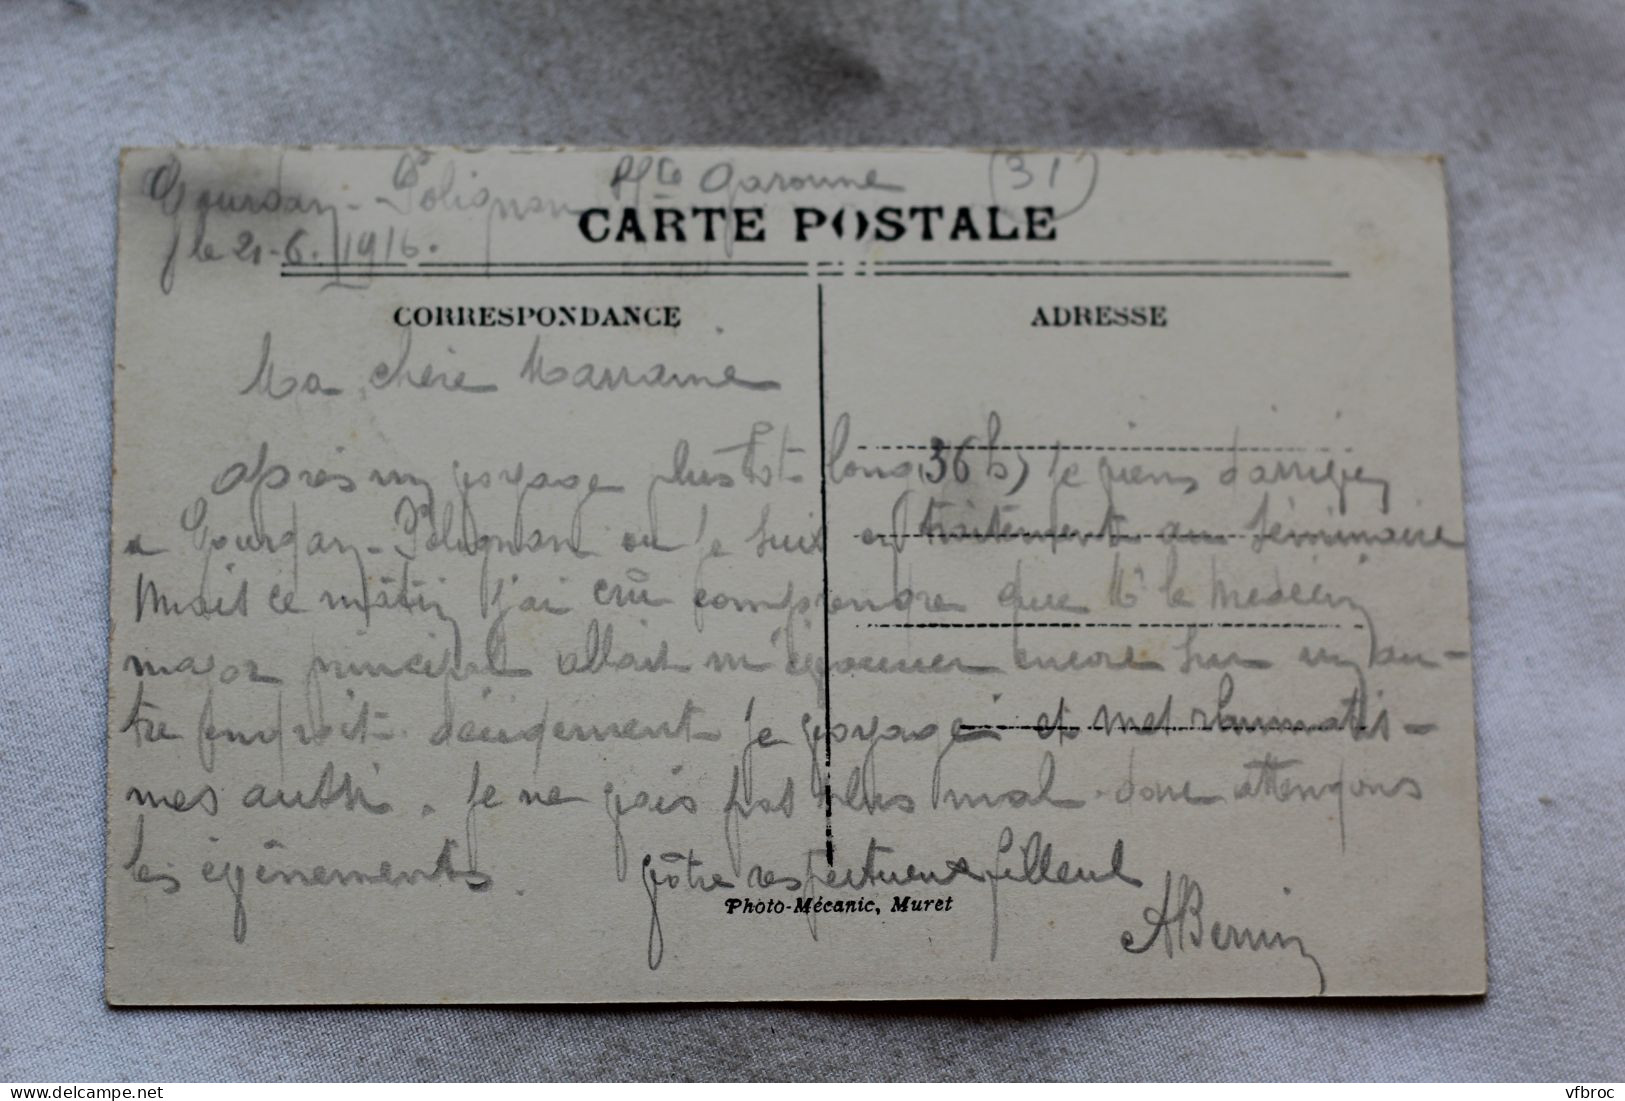 Gourdan-Polignan Hte Garonne (31)
le 21-6-1916.
CARTE POSTALE
CORRESPONDANCE
ADRESSE
Ma chère Marraine
après un voyage plustot long (36 h) je viens d'arriver
a Gourdan-Polignan ou je suix en traitement au séminaire
Mais ce mâtin j'ai crû comprendre que Mr le Médecin
major principal allait m'évacuer encore sur un au-
tre endroit. décidément je voyage et mes rhumatis-
mes aussi. Je ne vais pas plus mal. donc attendons
les évênements. Vôtre respectueux filleul
Photo-Mécanic, Muret
vfbroc